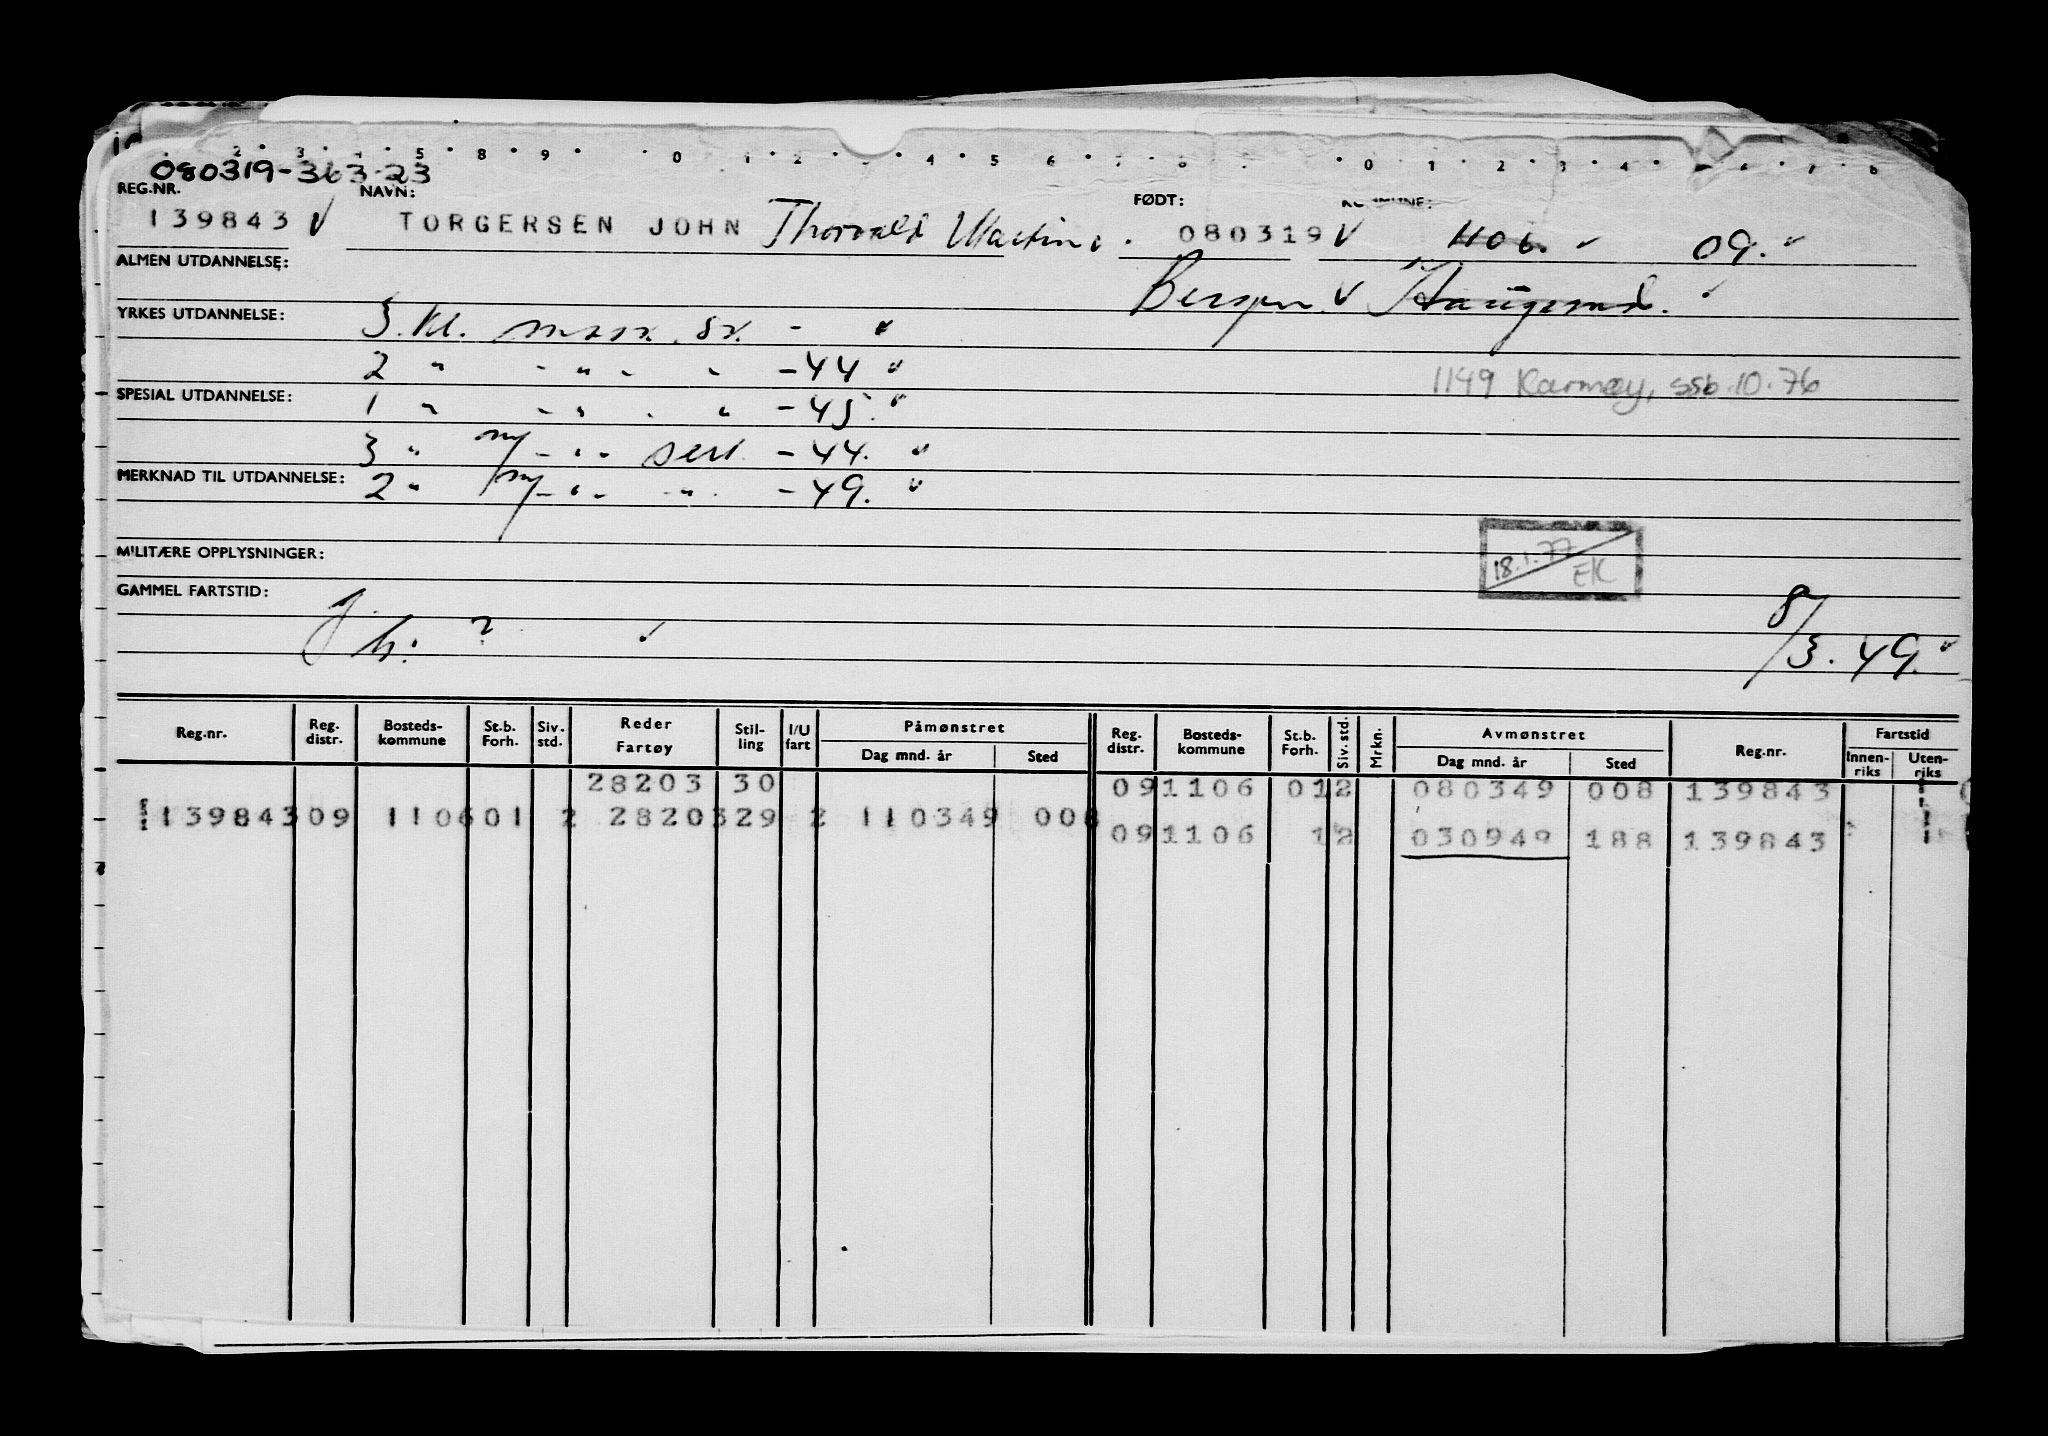 080319-363-23
REG.NR. NAVN: FØDT:
139843 V TORGERSEN JOHN Thorvald Martin. 080319 V 1106. 09.
ALMEN UTDANNELSE:
Bergen V Haugesund.
YRKES UTDANNELSE: 3. kl. mask. sk. - "
2 " - " - " -44 "
1149 Karmøy, ssb.10.76
SPESIAL UTDANNELSE: 1 " - " - " -45. "
3 " m/ - " - sert. -44. "
MERKNAD TIL UTDANNELSE: 2 " m/ - " - " -49. "
MILITÆRE OPPLYSNINGER:
18.1.77 EK
GAMMEL FARTSTID:
h: ? 8/3.49.
Reg.nr. Reg. distr. Bosteds- kommune St.b. Forh. Siv. std. Reder Fartøy Stil- ling I/U fart Påmønstret Dag mnd. år Sted Reg. distr. Bosteds- kommune St.b. Forh. Siv. std. Mrkn. Avmønstret Dag mnd. år Sted Reg.nr. Fartstid Innen- riks Uten- riks
28203 30 09 1106 01 2 080349 008 139843
139843 09 1106 01 2 28203 29 2 110349 008
09 1106 1 2 030949 188 139843